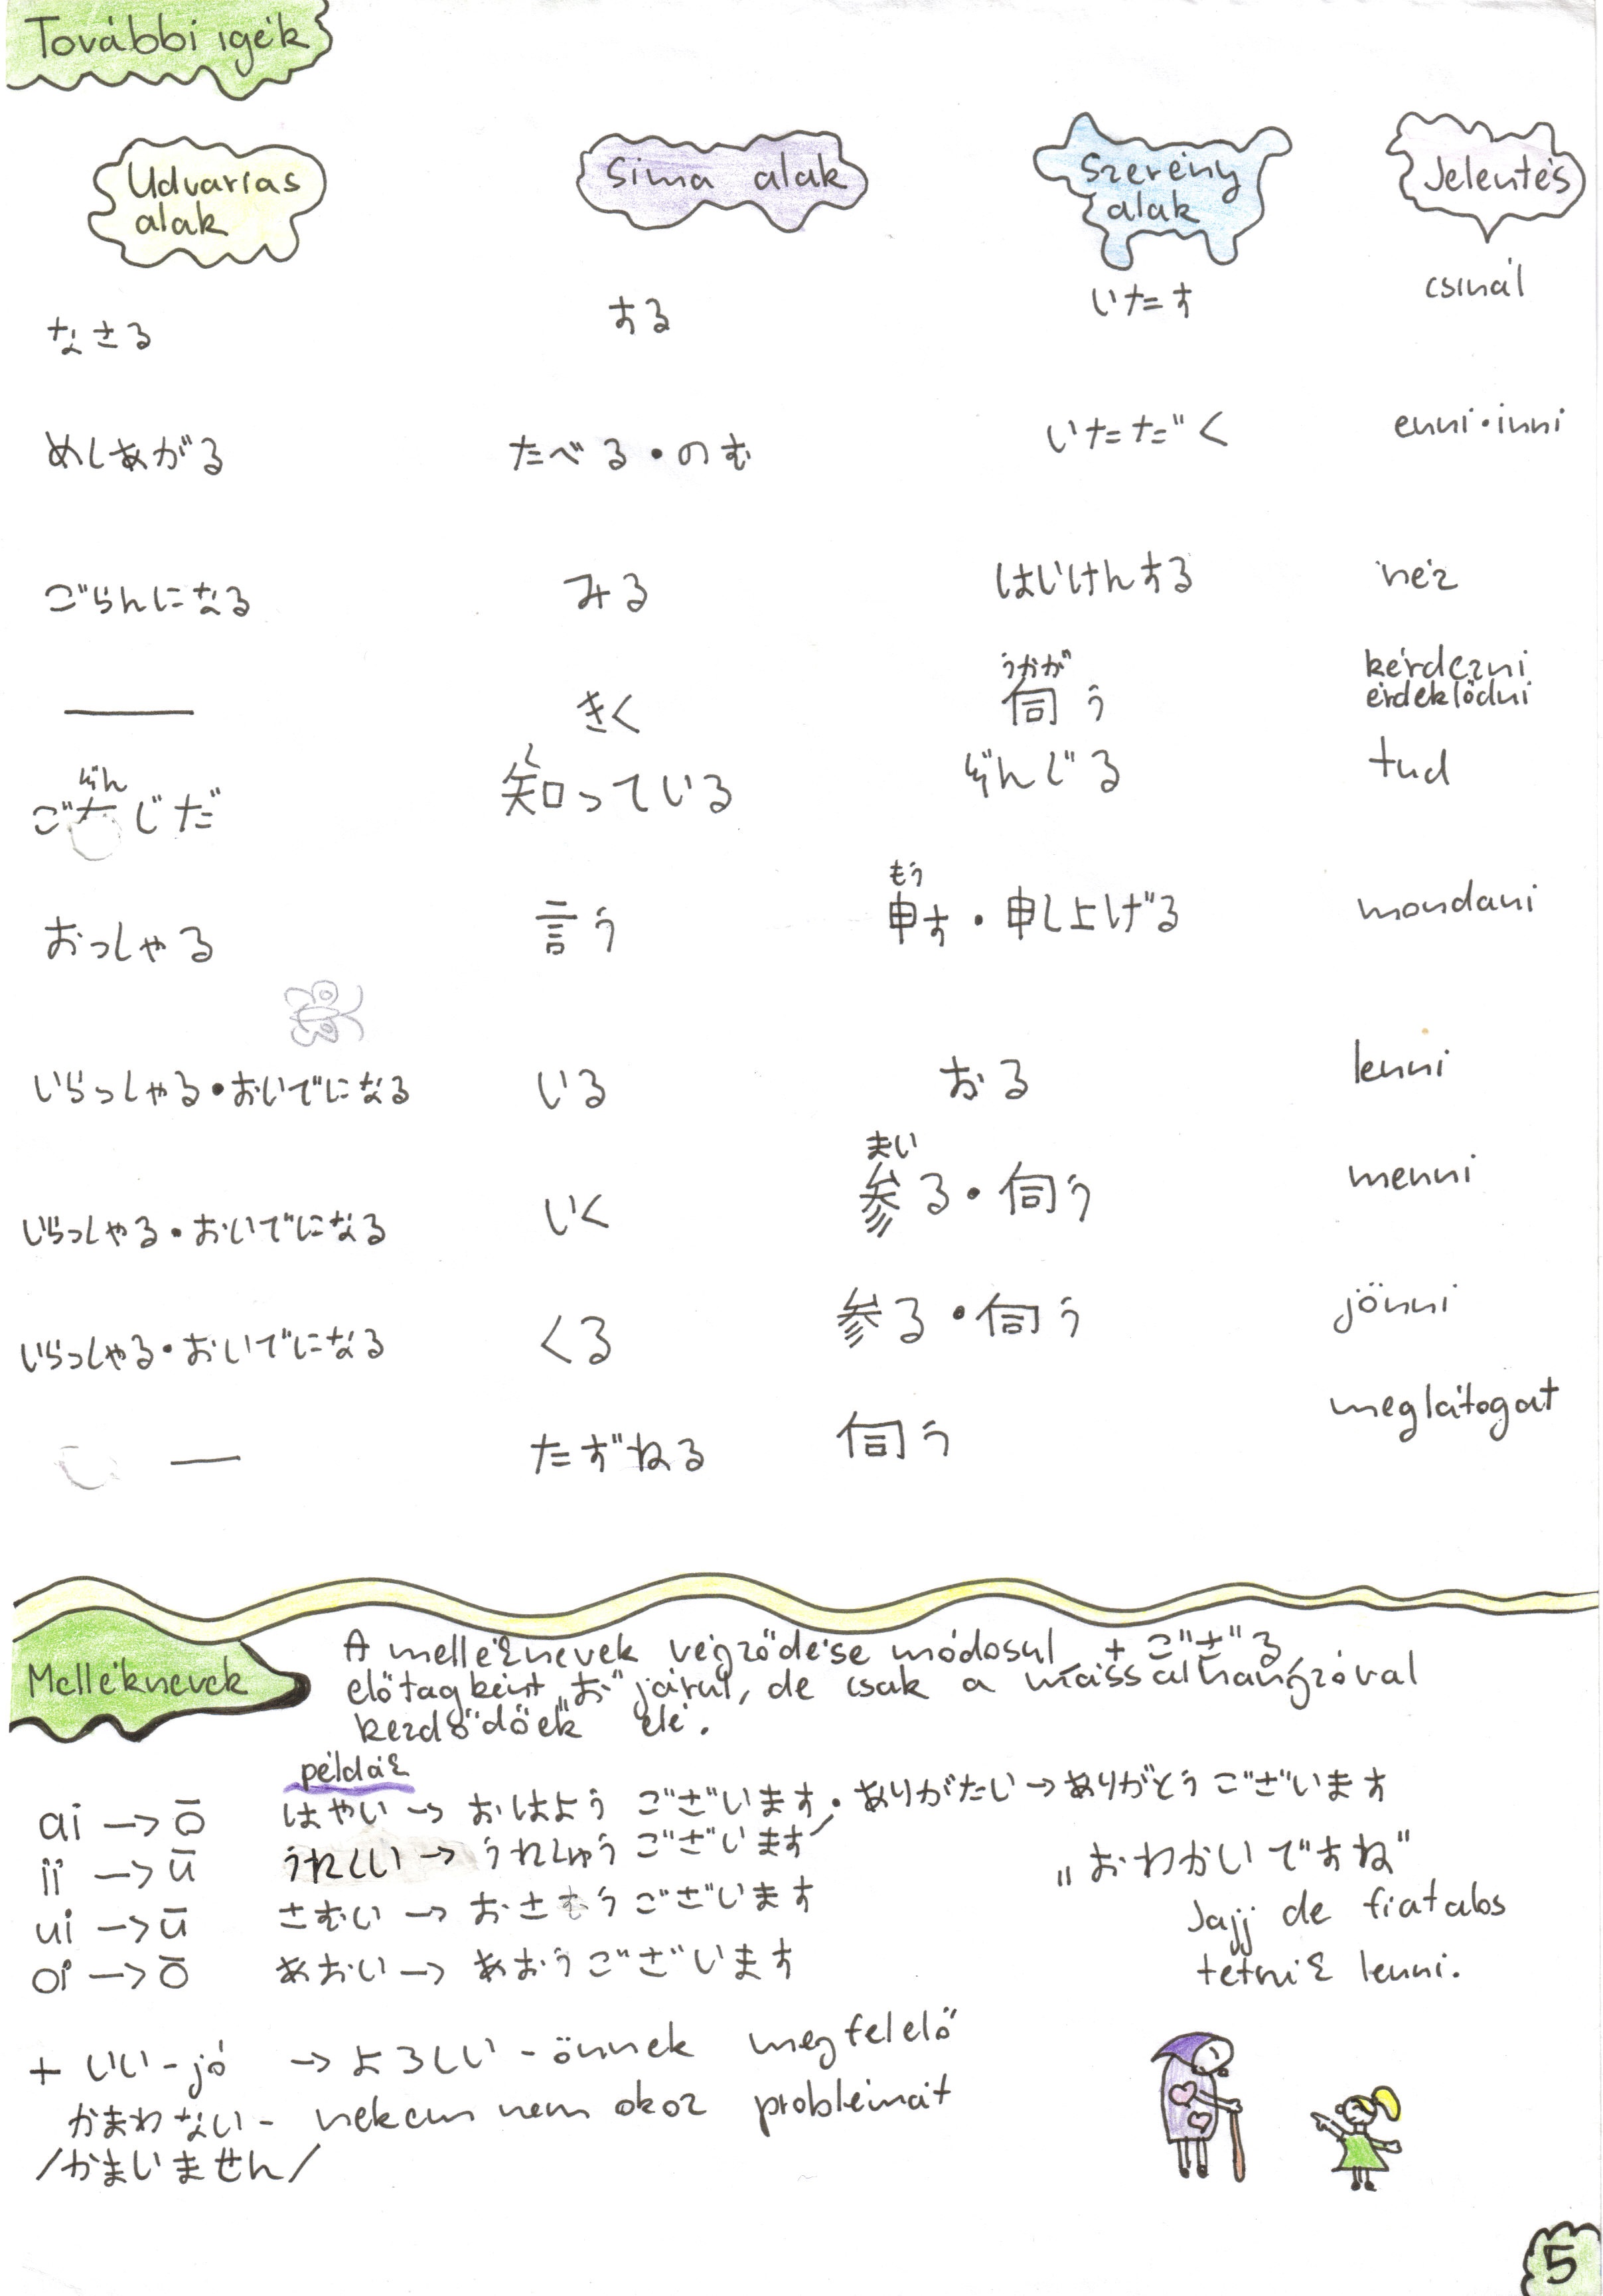 További igék
Udvarias alak
Sima alak
Szerény alak
Jelentés
なさる する いたす csinál
めしあがる たべる・のむ いただく enni・inni
ごらんになる みる はいけんする néz
— きく 伺う kérdezni érdeklődni
うかが
ぞん し
ごぞんじだ 知っている ぞんじる tud
もう
おっしゃる 言う 申す・申し上げる mondani
いらっしゃる・おいでになる いる おる lenni
まい
いらっしゃる・おいでになる いく 参る・伺う menni
いらっしゃる・おいでになる くる 参る・伺う jönni
— たずねる 伺う meglátogat
Melléknevek
A melléknevek végződése módosul + ござる
előtagként „お" járul, de csak a mássalhangzóval
kezdődőek elé.
példák
ai → ō はやい → おはよう ございます・ありがたい→ありがとうございます
ii → ū うれしい → うれしゅうございます
ui → ū さむい → おさむうございます
oi → ō あおい → あおうございます
„おわかいですね"
Jajj de fiatalos
tetnik lenni.
+ いい - jó → よろしい - önnek megfelelő
かまわない - nekem nem okoz problémát
/かまいません/
5